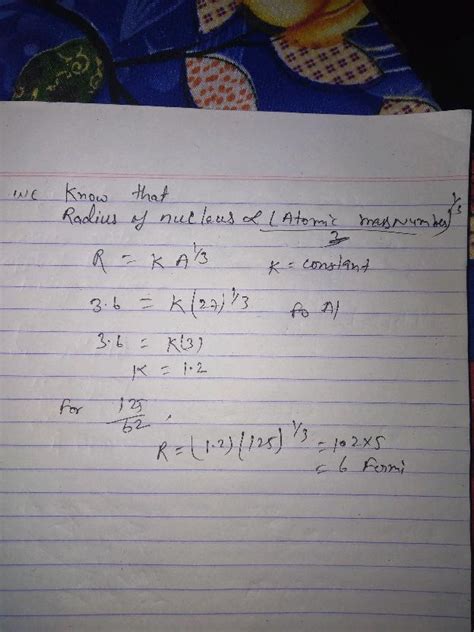 we know that
Radius of nucleus α (Atomic mass Number)^1/3
R = K A^1/3 K = constant
3.6 = K(27)^1/3 fo Al
3.6 = K(3)
K = 1.2
For 125/62,
R = (1.2)(125)^1/3 = 1.2×5
= 6 Fermi